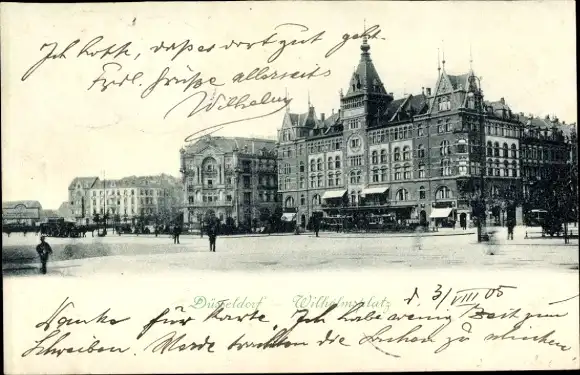 Ich hoffe, daß es dort gut geht.
Frdl. Grüße allerseits
Wilhelm
Düsseldorf Wilhelmsplatz
d. 3/VIII 05
Danke für Karte. Ich habe wenig Zeit zum
Schreiben. Werde trachten die Sachen zu